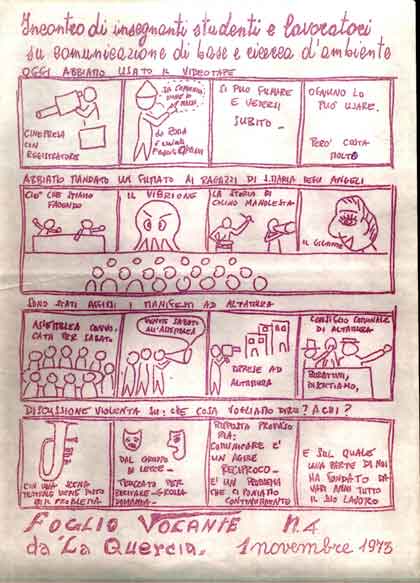 Incontro di insegnanti studenti e lavoratori
su comunicazione di base e ricerca d'ambiente
OGGI ABBIAMO USATO IL VIDEOTAPE
CINEPRESA
CON
REGISTRATORE
SI PUO' FUMARE
E VEDERSI
SUBITO -
OGNUNO LO
PUO' USARE.
PERO' COSTA
MOLTO
ABBIAMO MANDATO UN FILMATO AI RAGAZZI DI S. MARIA DEGLI ANGELI
CIO' CHE STIAMO
FACENDO
IL VIBRIONE
LA STORIA DI
CHINO MANOLESTA
IL GIGANTE
SONO STATI AFFISSI I MANIFESTI AD ALTAMURA
ASSEMBLEA CONVO
CATA PER SABATO
VENITE SABATO
ALL'ASSEMBLEA
DIFESE AD
ALTAMURA
CONSIGLIO COMUNALE
DI ALTAMURA
DISCUSSIONE VIOLENTA SU: CHE COSA VOGLIAMO DIRE? A CHI?
CON UNA SCENA
IL PROBLEMA
DAL GRUPPO
DI LECCE -
RISPOSTA
COMUNICARE E'
UN AGIRE
RECIPROCO -
E' UN PROBLEMA
CHE CI PONIAMO
CONTINUAMENTE
E SUL QUALE
UNA PARTE DI NOI
HA FONDATO DA
VARI ANNI TUTTO
IL SUO LAVORO
FOGLIO VOLANTE N. 4
da "La Quercia" 1 novembre 1973